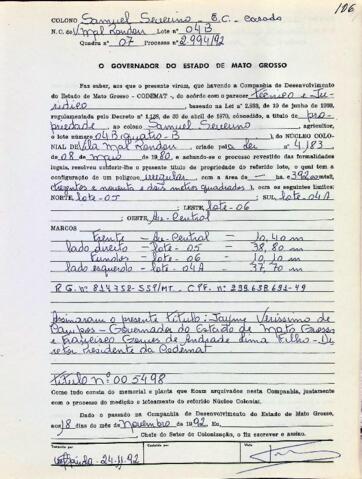 106
COLONO Samuel Severino - E.C. casado
N.C. de Mal Rondon Lote nº 04B
Quadra nº 07 Processo nº 2994/92
O GOVERNADOR DO ESTADO DE MATO GROSSO
Faz saber, aos que a presente virem, que havendo a Companhia de Desenvolvimento
do Estado de Mato Grosso - CODEMAT -, de acôrdo com o parecer técnico e Ju-
rídico, baseado na Lei nº
regulamentada pelo Decreto nº de 20 de abril de 1970, concedido, a titulo de pro-
priedade ao colono Samuel Severino, agricultor,
o lote número 04B (quatro-B) do NÚCLEO COLO-
NIAL DE Vila Mal Rondon, criado pela Lei nº 4.183
de 08 de maio de 1980, e achando-se o processo revestido das formalidades
legais, resolveu conferir-lhe o presente título de propriedade do referido lote, o qual tem a
configuração de um polígono irregular com a área de — ha, e 392,00 metros
(trezentos e noventa e dois metros quadrados), com os seguintes limites:
NORTE lote-05 SUL, lote-04A
LESTE, lote-06
OESTE, Av-Central
MARCOS
Frente - Av-Central — 10,40 m
lado direito - lote-05 — 38,80 m
Fundos - lote-06 — 10,10 m
lado esquerdo - lote-04A — 37,70 m
R.G. nº 814758-SSP/MT. CPF. nº
Assinaram o presente Título: Jayme Veríssimo de
Campos - Governador do Estado de Mato Grosso
e Francisco Gomes de Andrade Lima Filho - Di-
retor Presidente da Codemat
Título nº 005498
Como tudo consta do memorial e planta que ficam arquivados nesta Companhia, juntamente
com o processo de medição e loteamento do referido Núcleo Colonial.
Dado e passado na Companhia de Desenvolvimento do Estado de Mato Grosso,
aos 18 dias do mês de novembro de 1992 Eu,
Chefe do Setor de Colonização, o fiz escrever e assino.
24-11-92
Visto